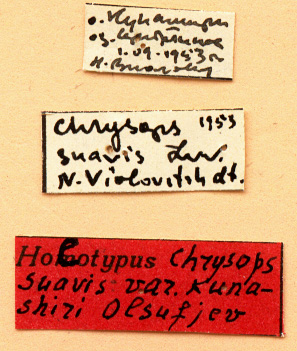 о. Кунашир
оз.
1.09.1953г
Н. Виолович
Chrysops 1953
suavis Lw.
N. Violovitsh dt.
Holotypus Chrysops
suavis var. Kuna-
shiri Olsufjev